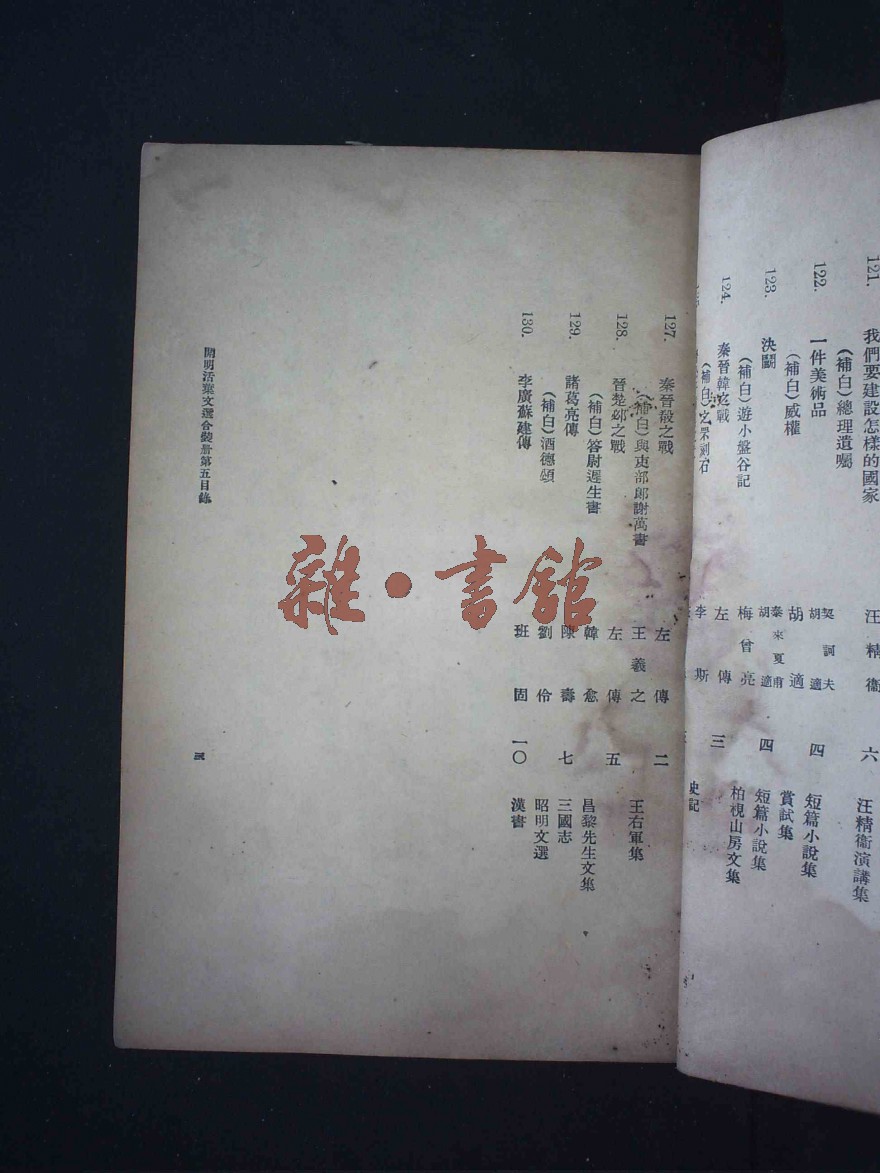 121. 我們要建設怎樣的國家 汪精衞 六 汪精衞演講集
(補白)總理遺囑
122. 一件美術品 契訶夫 胡適 四 短篇小說集
(補白)威權 胡適 嘗試集
123. 決鬭 泰來夏甫 胡適 四 短篇小說集
(補白)遊小盤谷記 梅曾亮 柏梘山房文集
124. 秦晉韓之戰 左傳 三
(補白)之罘刻石 李斯 史記
127. 秦晉殽之戰 左傳 二
(補白)與吏部郎謝萬書 王羲之 王右軍集
128. 晉楚邲之戰 左傳 五
(補白)答尉遲生書 韓愈 昌黎先生文集
129. 諸葛亮傳 陳壽 七 三國志
(補白)酒德頌 劉伶 昭明文選
130. 李廣蘇建傳 班固 一〇 漢書
開明活葉文選合裝册第五目錄
雜·書館